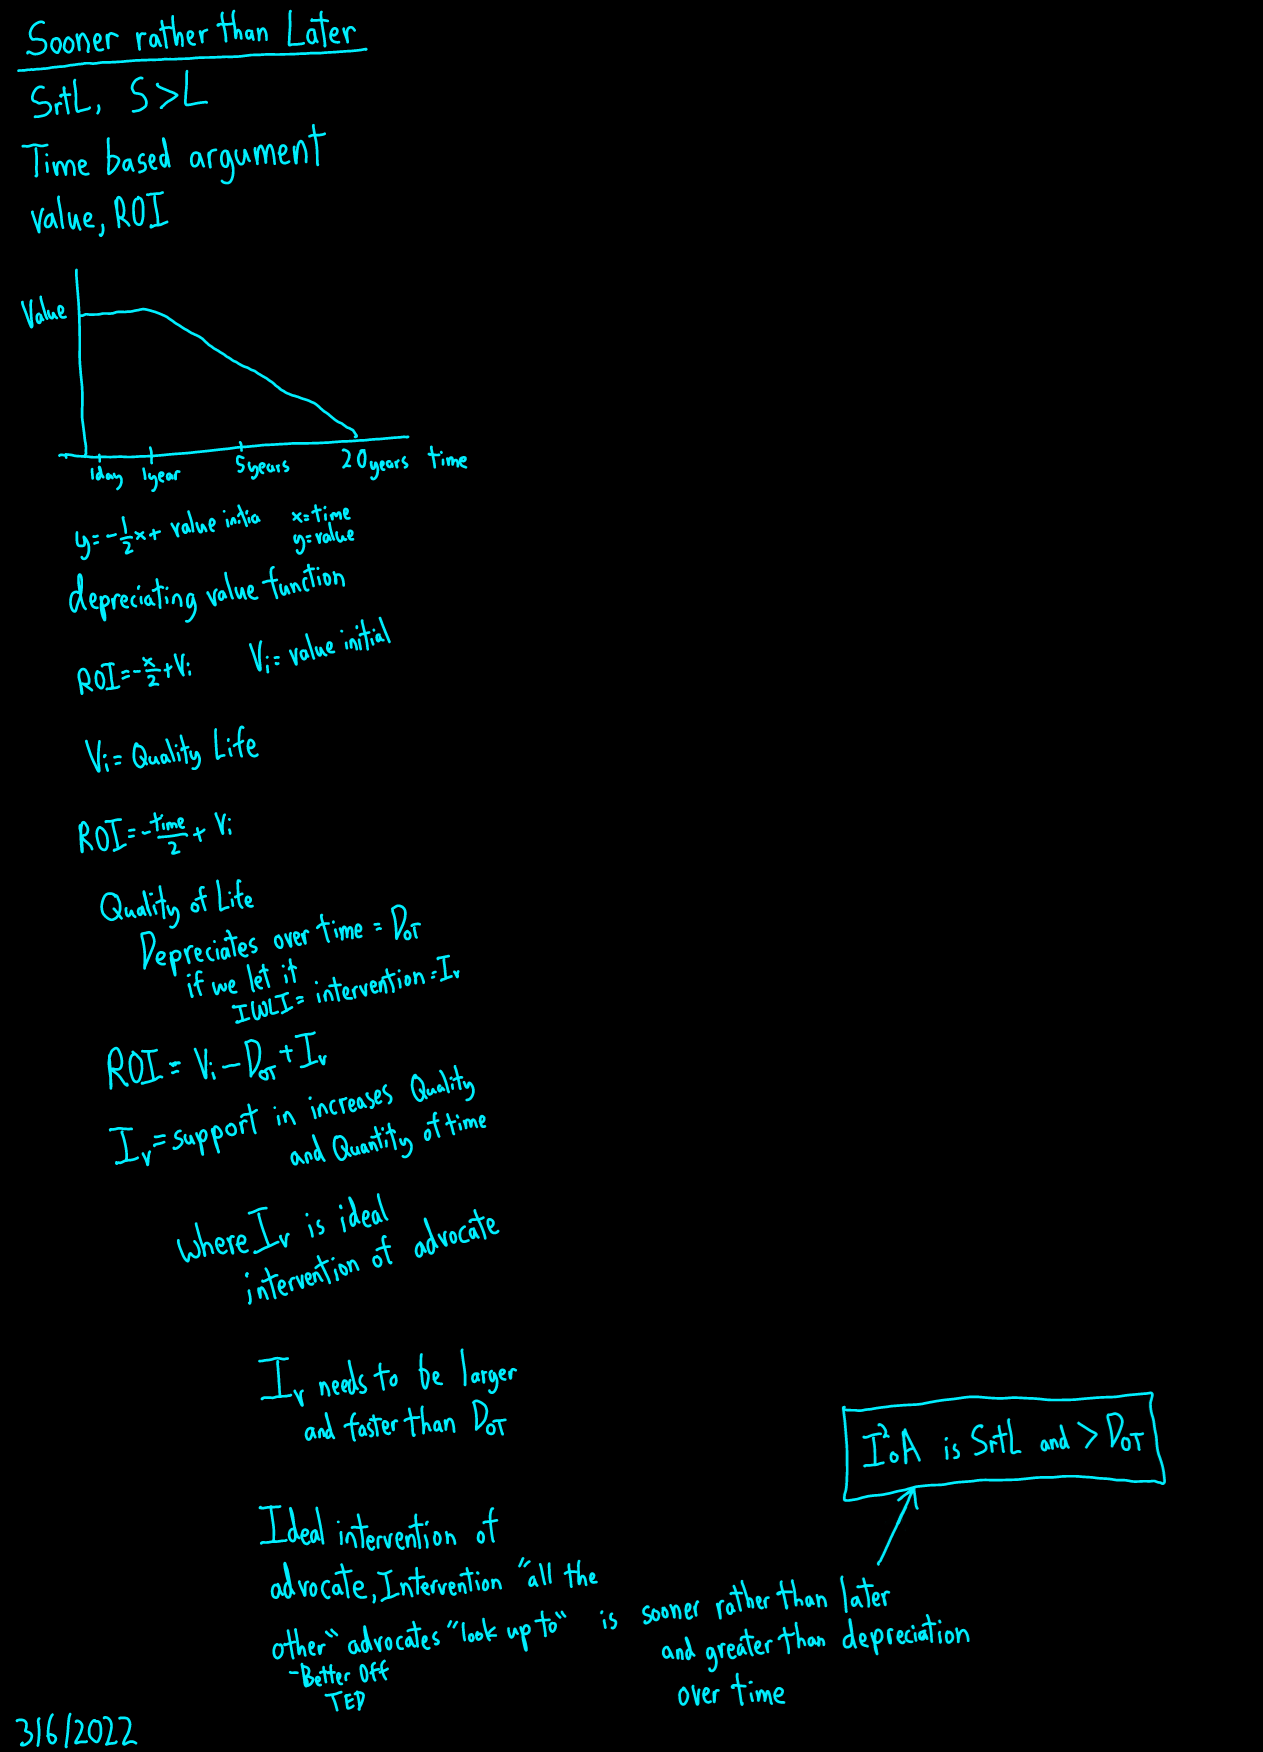 Sooner rather than Later
SrtL, S>L
Time based argument
value, ROI
Value
1day 1year 5years 20years time
y=-1/2x+ value initia x=time
y=value
depreciating value function
ROI=-x/2+Vi Vi= value initial
Vi= Quality Life
ROI=-time/2+ Vi
Quality of Life
Depreciates over time = DOT
if we let it
IWLI= intervention=Iv
ROI= Vi-DOT+Iv
Iv=support in increases Quality
and Quantity of time
where Iv is ideal
intervention of advocate
Iv needs to be larger
and faster than DOT
I²oA is SrtL and > DOT
Ideal intervention of
advocate, Intervention "all the
other" advocates "look up to" is sooner rather than later
and greater than depreciation
over time
-Better Off
TED
3/6/2022